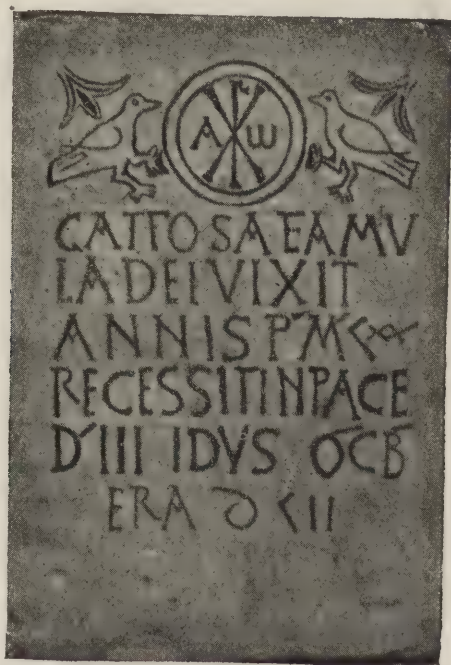 A ☧ ω
CATTOSA FAMV
LA DEI VIXIT
ANNIS P M
RECESSIT IN PACE
D III IDVS OCB
ERA DCII